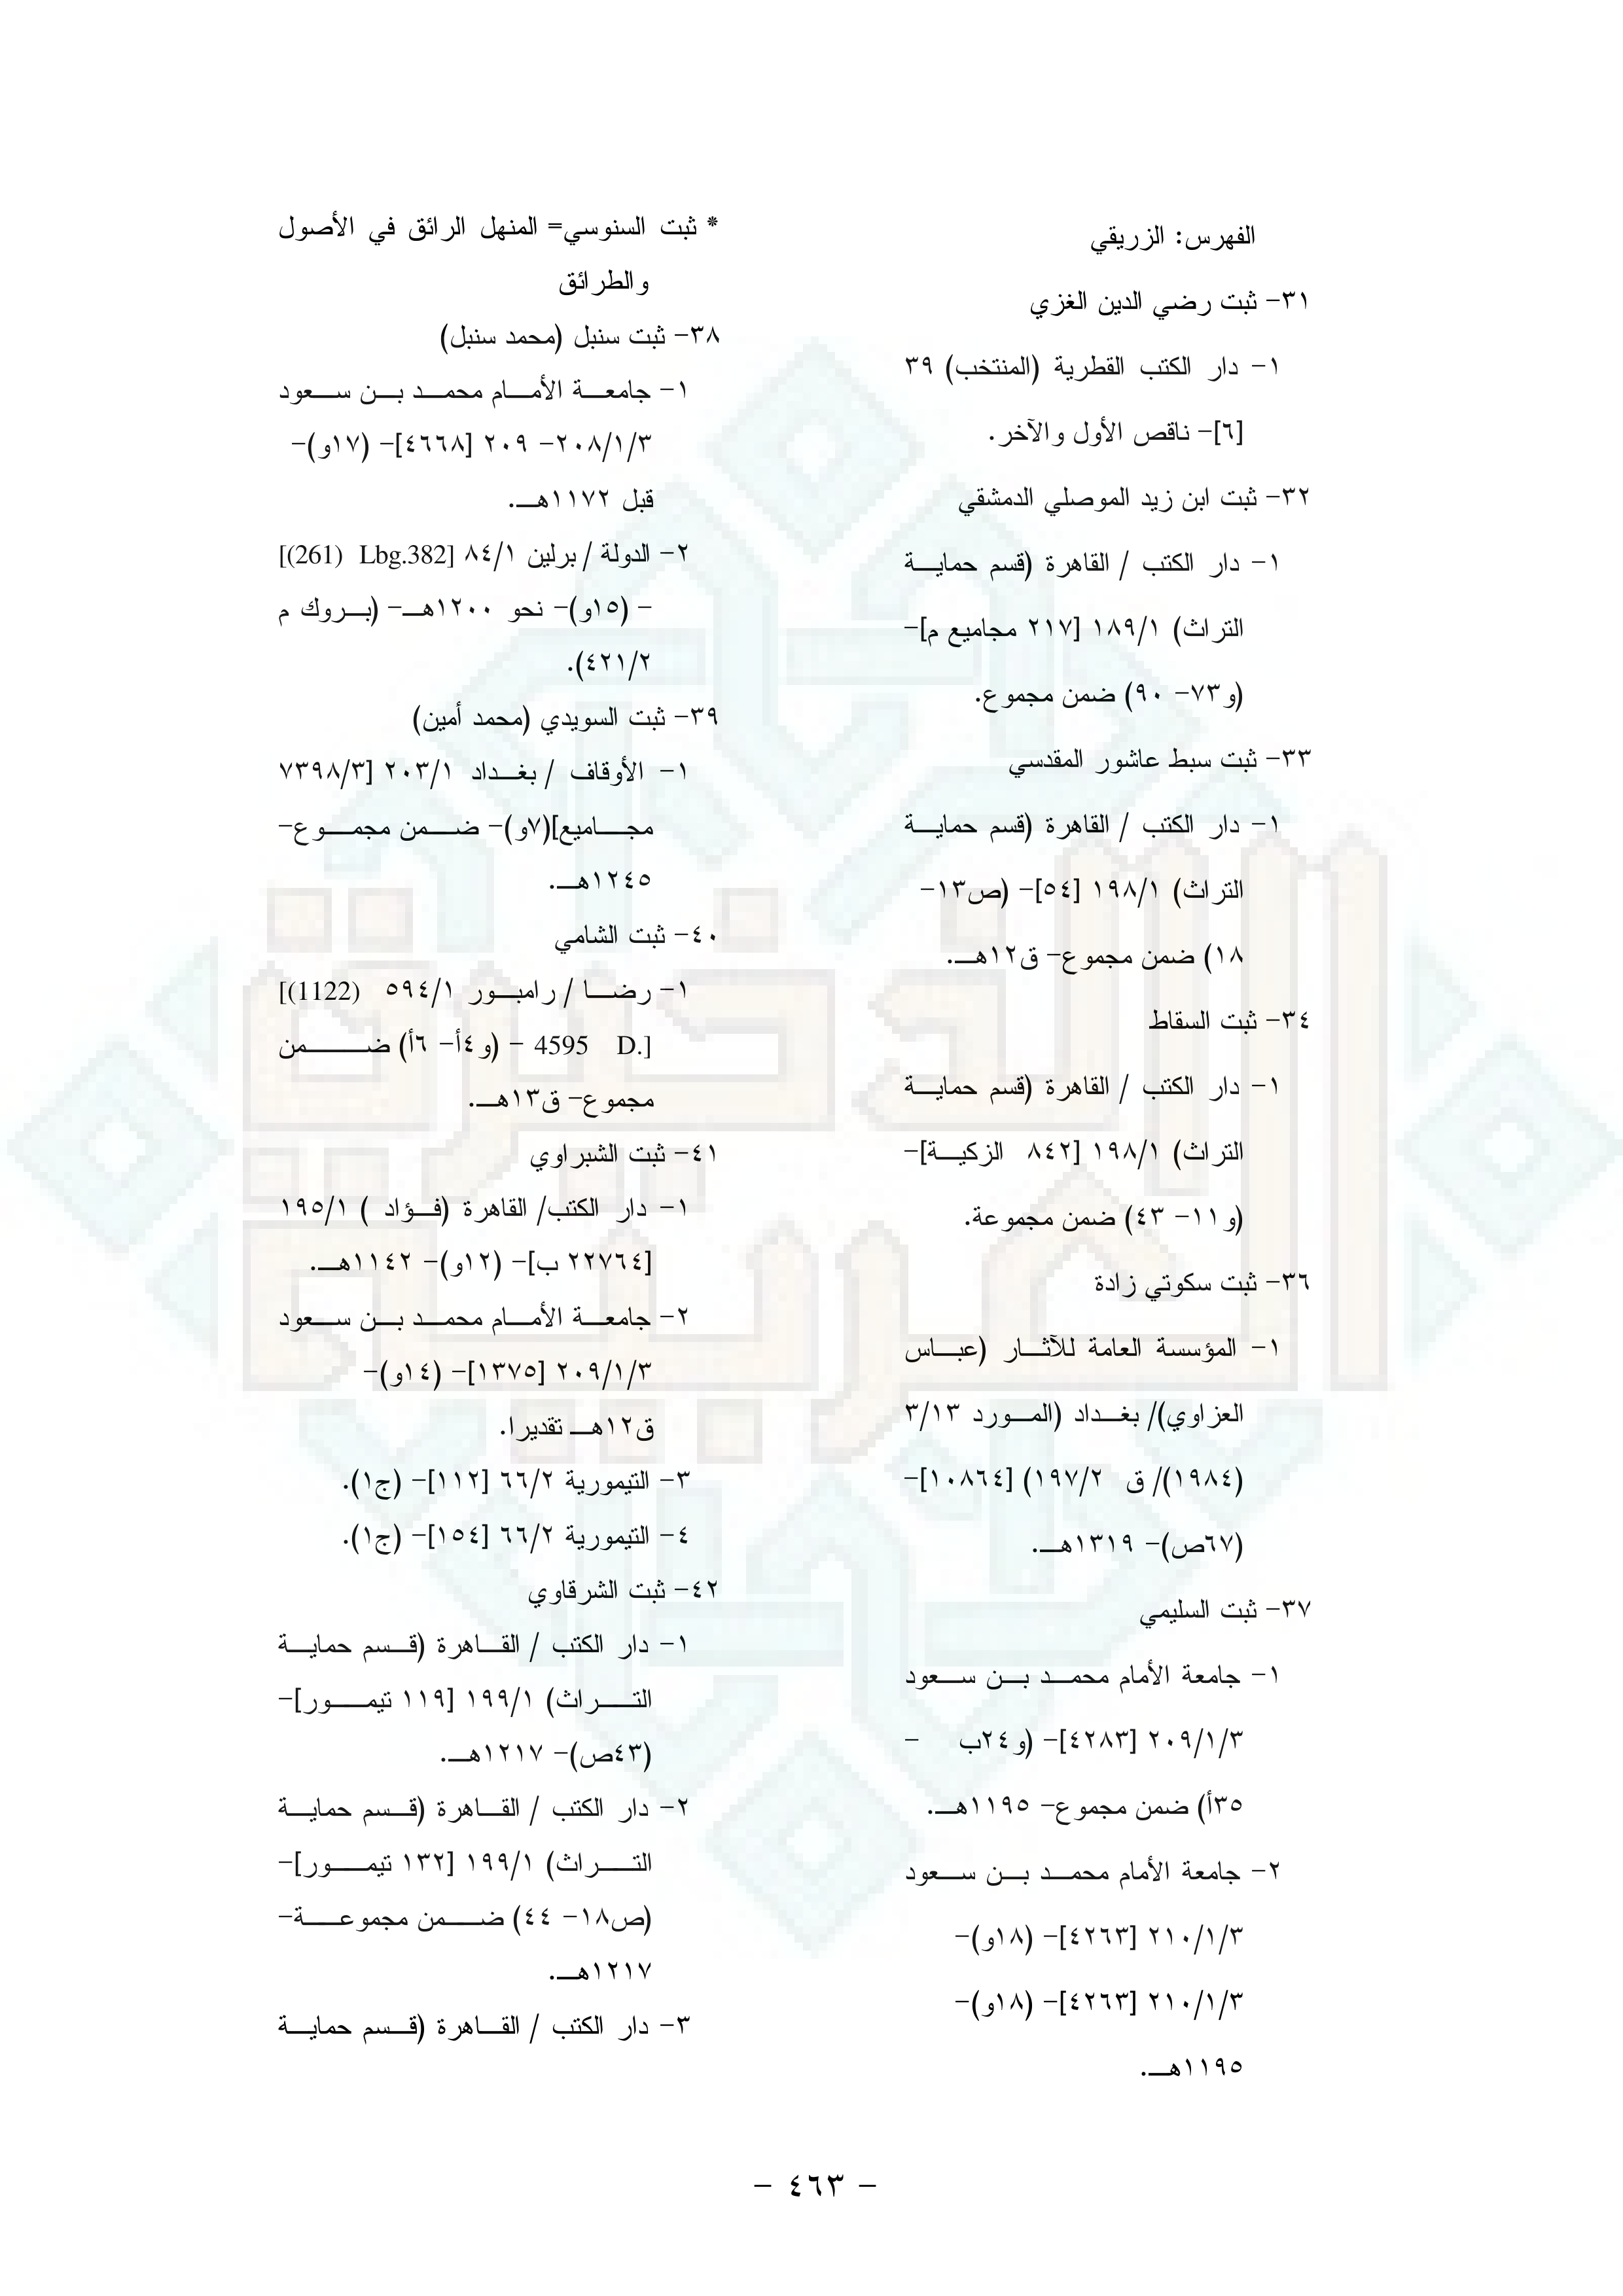 الفهرس: الزريقي
٣١- ثبت رضي الدين الغزي
١- دار الكتب القطرية (المنتخب) ٣٩
[٦]- ناقص الأول والآخر.
٣٢- ثبت ابن زيد الموصلي الدمشقي
١- دار الكتب / القاهرة (قسم حمايـــة
التراث) ١٨٩/١ [٢١٧ مجاميع م]-
(و٧٣- ٩٠) ضمن مجموع.
٣٣- ثبت سبط عاشور المقدسي
١- دار الكتب / القاهرة (قسم حمايـــة
التراث) ١٩٨/١ [٥٤]- (ص١٣-
١٨) ضمن مجموع- ق١٢هـــ.
٣٤- ثبت السقاط
١- دار الكتب / القاهرة (قسم حمايـــة
التراث) ١٩٨/١ [٨٤٢ الزكيـــة]-
(و١١- ٤٣) ضمن مجموعة.
٣٦- ثبت سكوتي زادة
١- المؤسسة العامة للآثـــار (عبـــاس
العزاوي)/ بغـــداد (المـــورد ٣/١٣
(١٩٨٤)/ ق ١٩٧/٢) [١٠٨٦٤]-
(٦٧ص)- ١٣١٩هـــ.
٣٧- ثبت السليمي
١- جامعة الأمام محمـــد بـــن ســـعود
٢٠٩/١/٣ [٤٢٨٣]- (و٢٤ب -
٣٥أ) ضمن مجموع- ١١٩٥هـــ.
٢- جامعة الأمام محمـــد بـــن ســـعود
٢١٠/١/٣ [٤٢٦٣]- (١٨و)-
٢١٠/١/٣ [٤٢٦٣]- (١٨و)-
١١٩٥هـــ.
* ثبت السنوسي= المنهل الرائق في الأصول
والطرائق
٣٨- ثبت سنبل (محمد سنبل)
١- جامعـــة الأمـــام محمـــد بـــن ســـعود
٢٠٨/١/٣- ٢٠٩ [٤٦٦٨]- (١٧و)-
قبل ١١٧٢هـــ.
٢- الدولة / برلين ٨٤/١ [Lbg.382 (261)]
- (١٥و)- نحو ١٢٠٠هـــ- (بـــروك م
٤٢١/٢).
٣٩- ثبت السويدي (محمد أمين)
١- الأوقاف / بغـــداد ٢٠٣/١ [٧٣٩٨/٣
مجـــاميع](٧و)- ضـــمن مجمـــوع-
١٢٤٥هـــ.
٤٠- ثبت الشامي
١- رضـــا / رامبـــور ٥٩٤/١ (1122)]
[.D 4595 - (و٤أ- ٦أ) ضـــــمن
مجموع- ق١٣هـــ.
٤١- ثبت الشبراوي
١- دار الكتب/ القاهرة (فـــؤاد ) ١٩٥/١
[٢٢٧٦٤ ب]- (١٢و)- ١١٤٢هـــ.
٢- جامعـــة الأمـــام محمـــد بـــن ســـعود
٢٠٩/١/٣ [١٣٧٥]- (١٤و)-
ق١٢هـــ تقديرا.
٣- التيمورية ٦٦/٢ [١١٢]- (ج١).
٤- التيمورية ٦٦/٢ [١٥٤]- (ج١).
٤٢- ثبت الشرقاوي
١- دار الكتب / القـــاهرة (قـــسم حمايـــة
التـــراث) ١٩٩/١ [١١٩ تيمـــور]-
(٤٣ص)- ١٢١٧هـــ.
٢- دار الكتب / القـــاهرة (قـــسم حمايـــة
التـــراث) ١٩٩/١ [١٣٢ تيمـــور]-
(ص١٨- ٤٤) ضـــمن مجموعـــة-
١٢١٧هـــ.
٣- دار الكتب / القـــاهرة (قـــسم حمايـــة
- ٤٦٣ -